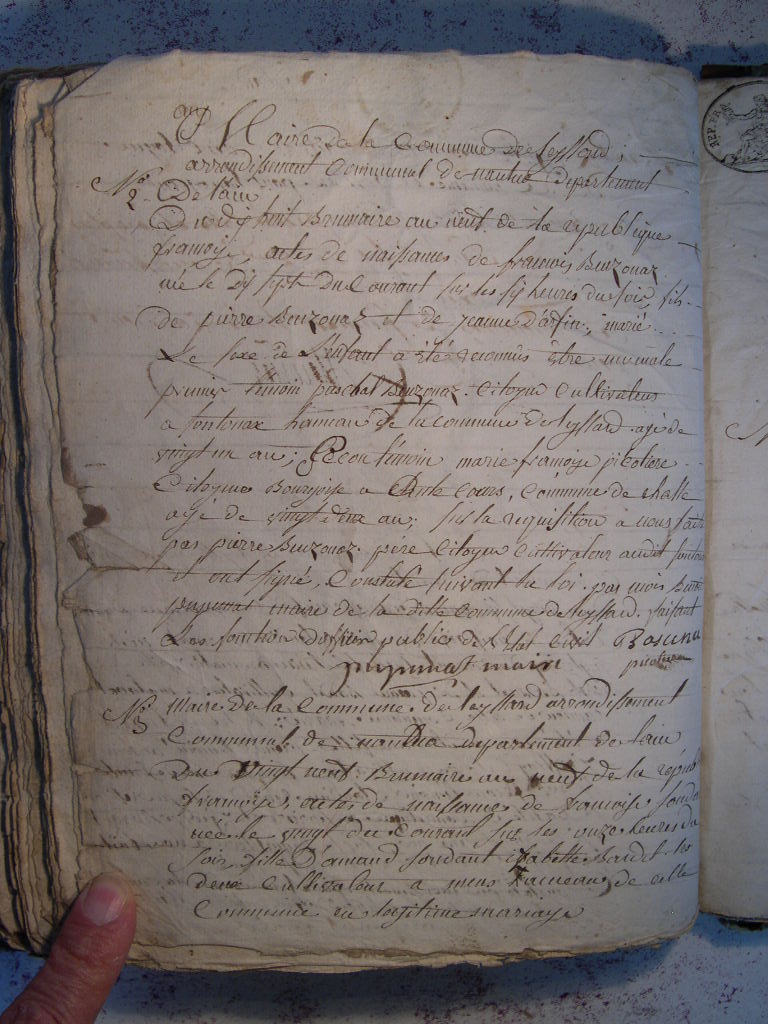 Maire de la Commune de Leyssard,
arrondissement Communal de nantua departement
No 2. De lain
Du dix huit Brumaire an neuf de la republique
françoise, actes de naissances de françois Buizonaz
née le dix sept du Courant sur les six heures du soir, fils
de pierre Bonzonaz et de jeanne D'arfin, marié
Le sexe de L'enfant a été reconnus être un male
premier temoin paschal Buizonaz Citoyen Cultivateur
a fontenax hameau de la commune de leyssard agé de
vingt un an; Second temoin marie françoise picotiere
Citoyenne Bourgoise a Commune de challe
agé de vingt deux an; sur la requisition a nous faite
par pierre Buizonaz pére Citoyen Cultivateur audit
et ont signé, Constaté suivant la loi par mois
maire de la ditte Commune de leyssard faisant
Les fonction d'officier public de l'Etat Civil
maire
No 3 Maire de la Commune de leyssard arrondissement
Communal de nantua departement de lain
Du Vingt neuf Brumaire an neuf de la répub
françoise, actes de naissances de françoise
née le vingt du Courant sur les onze heures du
soir, fille D'amand soudant les
deux Cultivateur a mens hameau de cette
Commune en legitime mariage
REP. FRA